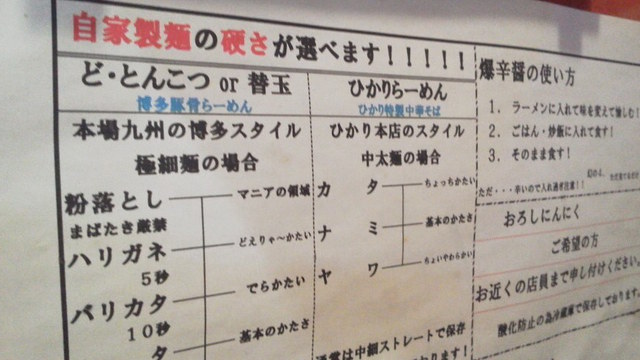 自家製麺の硬さが選べます!!!!!
ど・とんこつ or 替玉
博多豚骨らーめん
本場九州の博多スタイル
極細麺の場合
粉落とし マニアの領域
まばたき厳禁
ハリガネ どえりゃ〜かたい
5秒
バリカタ でらかたい
10秒
タ 基本のかたさ
ひかりらーめん
ひかり特製中華そば
ひかり本店のスタイル
中太麺の場合
カタ ちょっちかたい
ナミ 基本のかたさ
ヤワ ちょいやわらかい
通常は中細ストレートで保存
爆辛醤の使い方
1. ラーメンに入れて味を変えて愉しむ!
2. ごはん・炒飯に入れて食す!
3. そのまま食す!
ただ・・・辛いので入れ過ぎ注意!!
おろしにんにく
ご希望の方
お近くの店員まで申し付けください。
酸化防止の為冷蔵庫で保存しております。